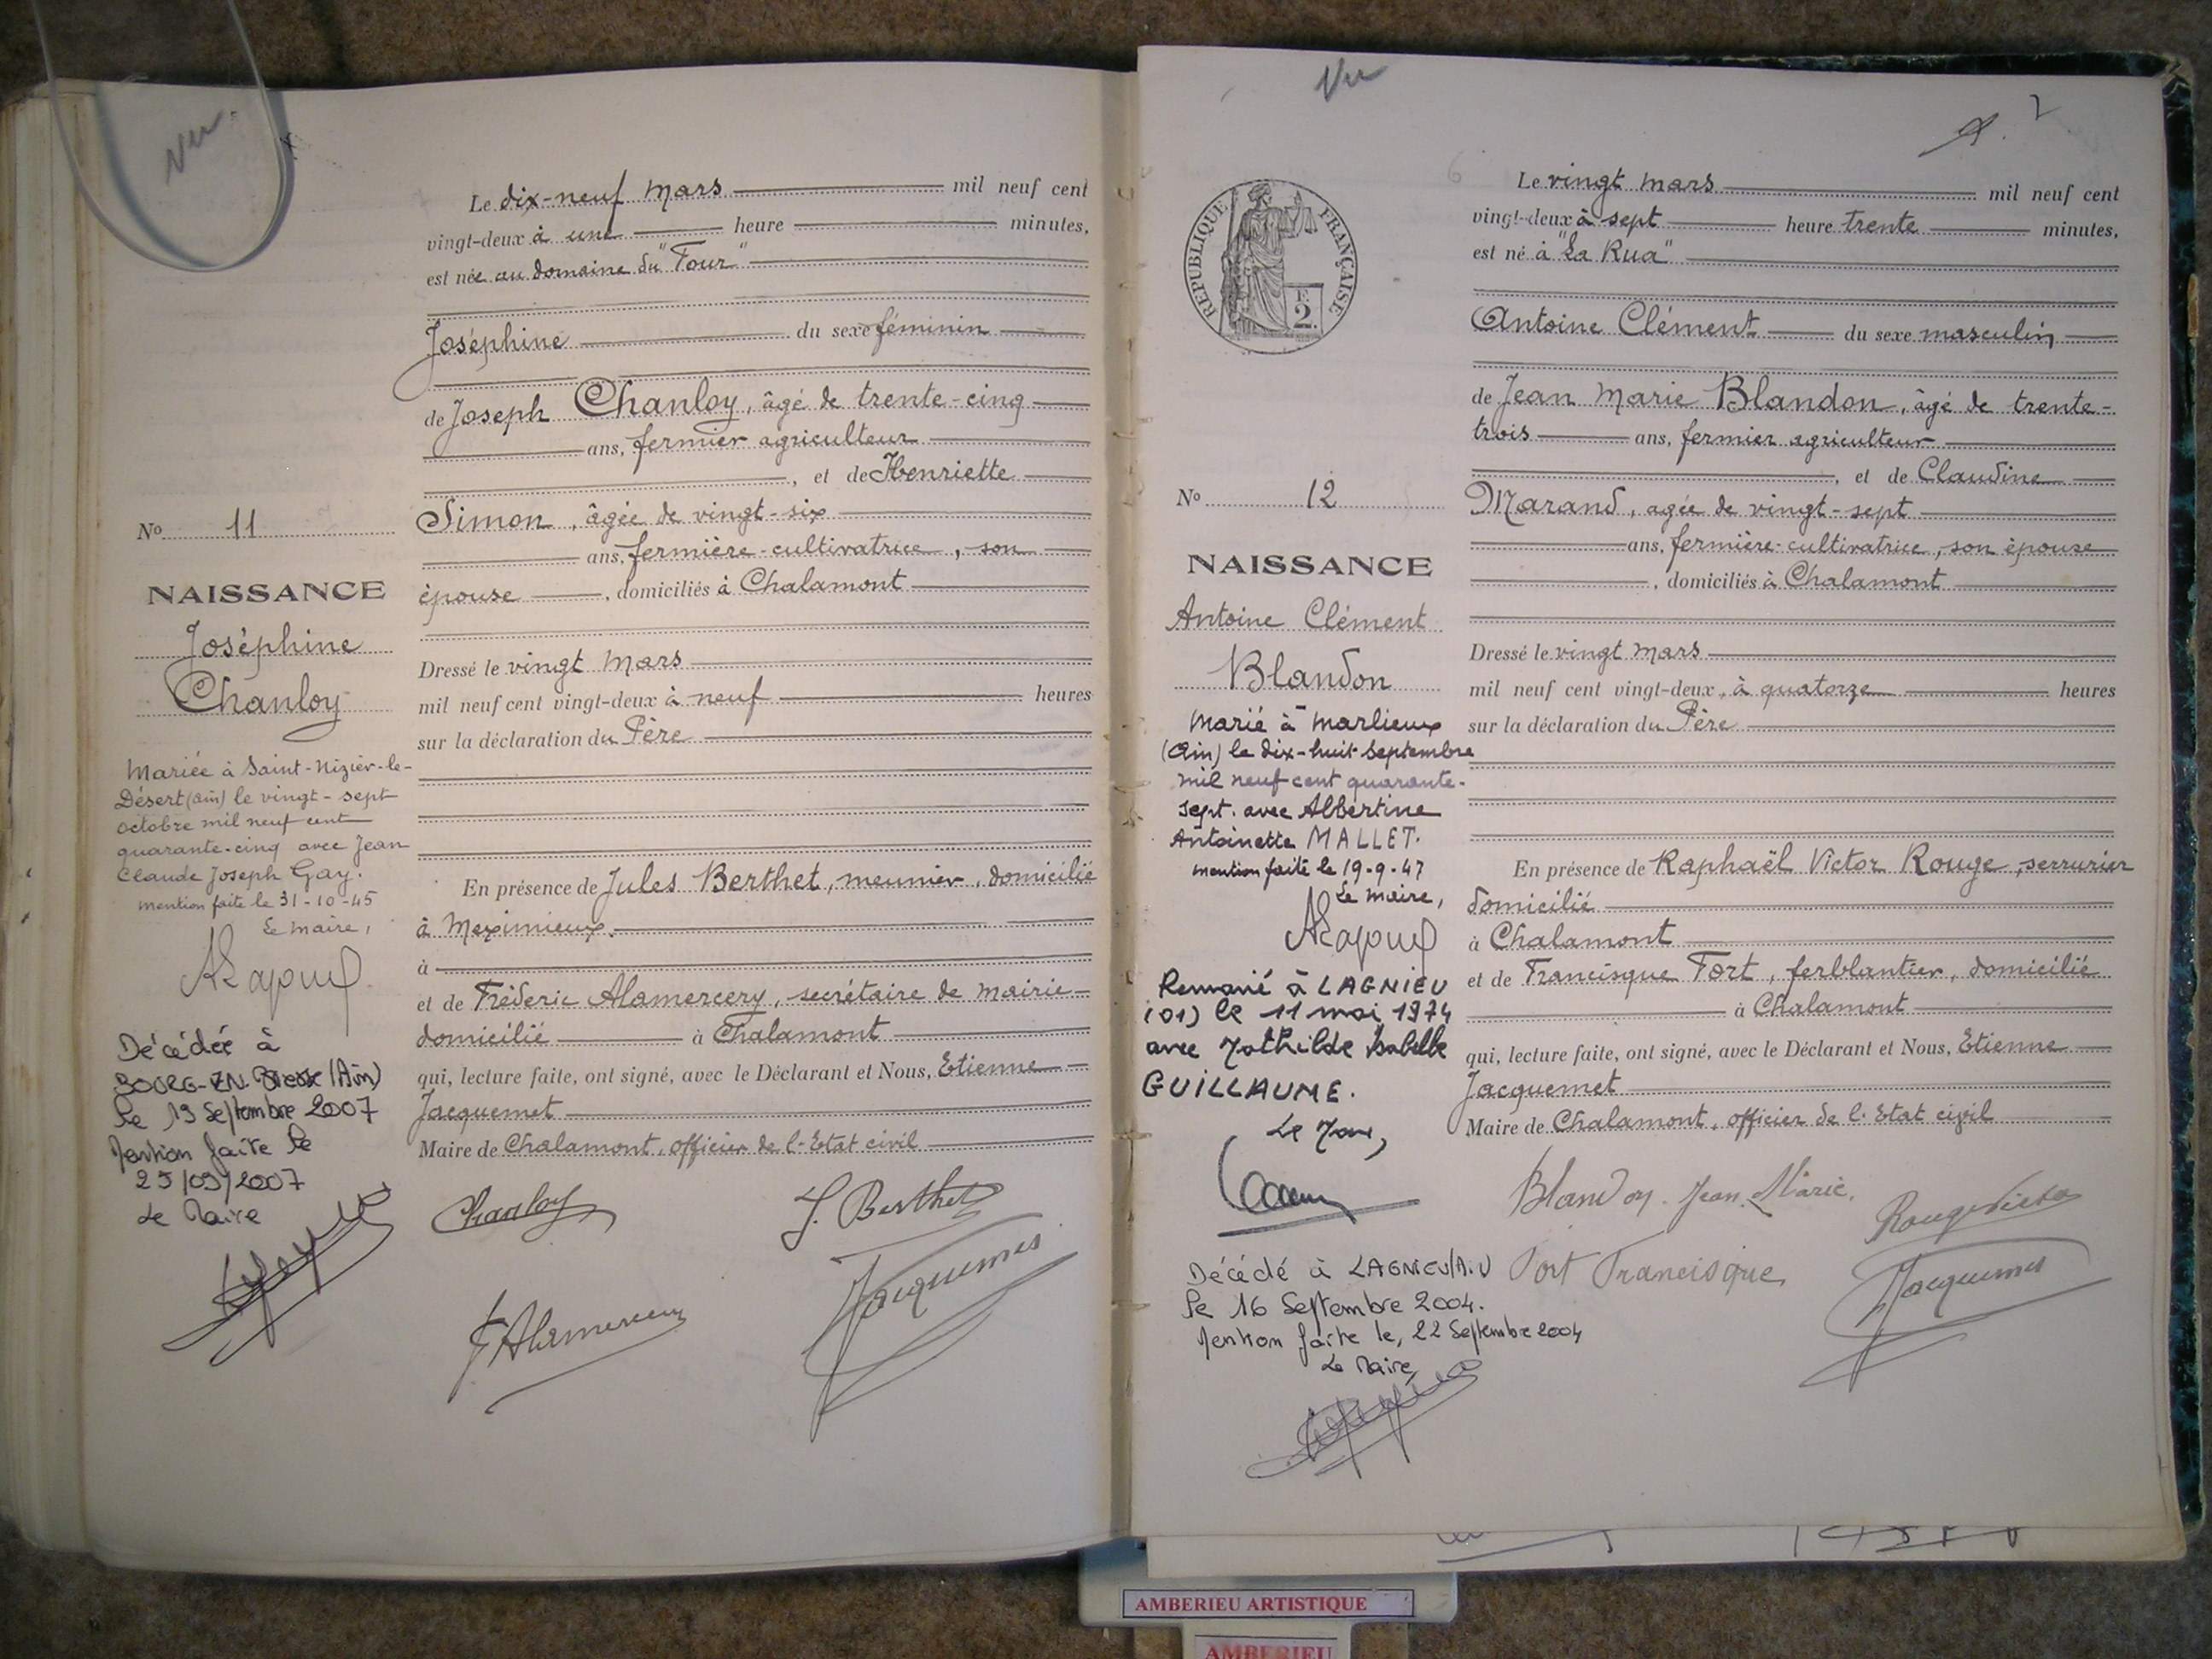 Vu
Le dix-neuf Mars mil neuf cent
vingt-deux à une heure minutes,
est née au domaine du "Four"
Joséphine du sexe féminin
de Joseph Chanloy, âgé de trente-cinq
ans, fermier agriculteur
, et de Henriette
Simon, âgée de vingt-six
ans, fermière-cultivatrice, son
épouse , domiciliés à Chalamont
Dressé le vingt Mars
mil neuf cent vingt-deux à neuf heures
sur la déclaration du Père
En présence de Jules Berthet, meunier, domicilié
à Meximieux.
à
et de Fréderic Alamercery, secrétaire de Mairie
domicilié à Chalamont
qui, lecture faite, ont signé, avec le Déclarant et Nous, Etienne
Jacquemet
Maire de Chalamont, officier de l'Etat civil
Chanloy
J. Berthet
F. Alamercery
Jacquemet
No 11
NAISSANCE
Joséphine
Chanloy
Mariée à Saint-Nizier-le-
Désert (Ain) le vingt-sept
octobre mil neuf cent
quarante-cinq avec Jean
Claude Joseph Gay.
mention faite le 31-10-45
Le maire,
Décédée à
BOURG-EN-Bresse (Ain)
le 19 Septembre 2007
Mention faite le
25/09/2007
Le Maire
Vu
RÉPUBLIQUE FRANÇAISE
2
Le vingt Mars mil neuf cent
vingt-deux à sept heure trente minutes,
est né à "La Rua"
Antoine Clément du sexe masculin
de Jean Marie Blandon, âgé de trente-
trois ans, fermier agriculteur
, et de Claudine
Marand, agée de vingt-sept
ans, fermière-cultivatrice, son épouse
, domiciliés à Chalamont
Dressé le vingt Mars
mil neuf cent vingt-deux, à quatorze heures
sur la déclaration du Père
En présence de Raphaël Victor Rouge, serrurier
domicilié
à Chalamont
et de Francisque Fort, ferblantier, domicilié
à Chalamont
qui, lecture faite, ont signé, avec le Déclarant et Nous, Etienne
Jacquemet
Maire de Chalamont, officier de l'Etat civil
Blandon Jean Marie.
Rouge Victor
Fort Francisque
Jacquemet
No 12
NAISSANCE
Antoine Clément
Blandon
Marié à Marlieux
(Ain) le dix-huit septembre
mil neuf cent quarante-
sept. avec Albertine
Antoinette MALLET.
mention faite le 19-9-47
Le maire,
Remarié à LAGNIEU
(01) le 11 mai 1974
avec Mathilde Isabelle
GUILLAUME.
Le Maire,
Décédé à LAGNIEU/Ain
le 16 Septembre 2004.
Mention faite le, 22 Septembre 2004
Le Maire
AMBERIEU ARTISTIQUE
AMBERIEU